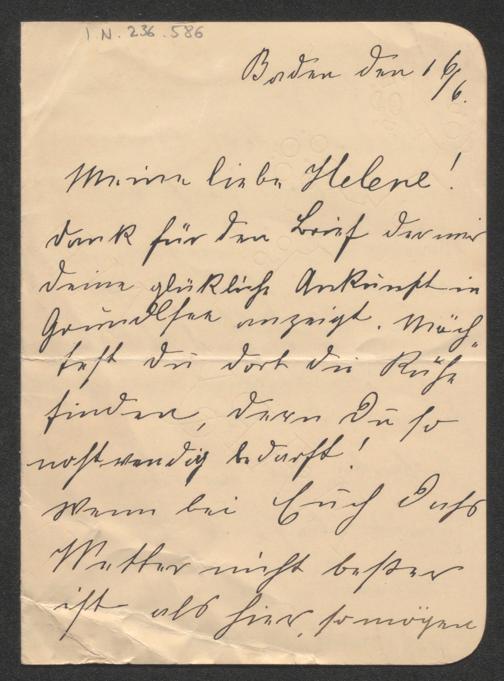 I N. 236.586
Baden den 16/6.
Meine liebe Helene!
Dank für den Brief der mir
deine glükliche Ankunft in
Grundlsee anzeigt. Möch-
test du dort die Ruhe
finden, deren Du so
nothwendig bedarfst!
Wenn bei Euch das
Wetter nicht besser
ist als hier, so mögen